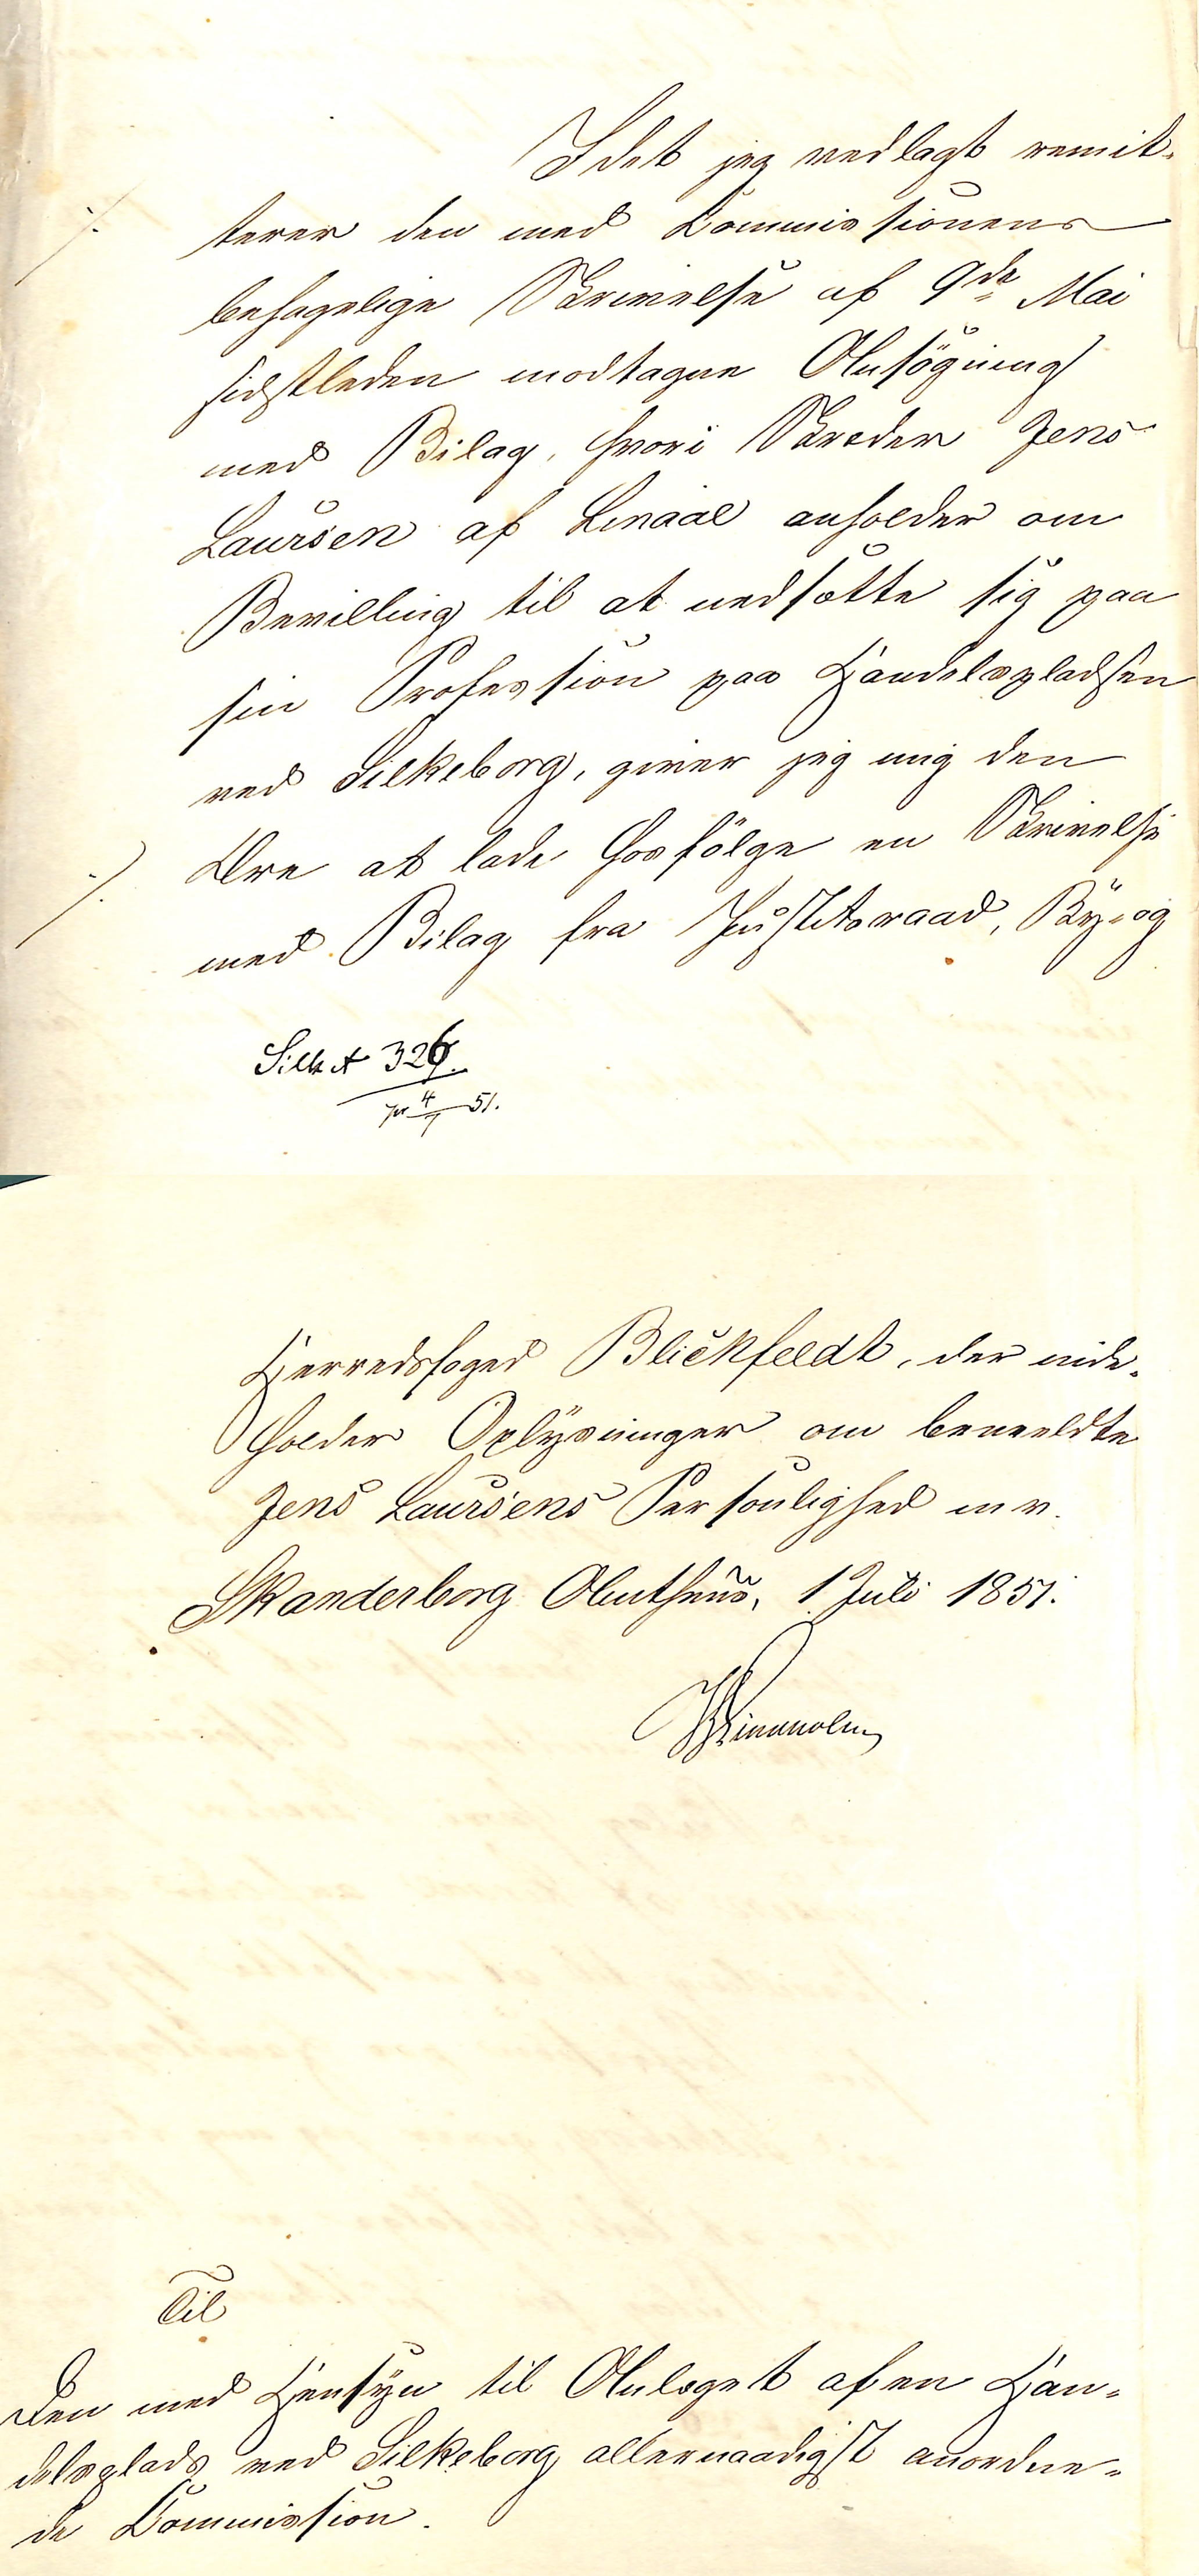 Idet jeg vedlagt remit-
terer den med Commissionens
behagelige Skrivelse af 9de Mai
sidstleden modtagne Ansögning
med Bilag, hvori Skræder Jens
Laursen af Linaae anholder om
Bevilling til at nedsætte sig paa
sin Profession paa Handelspladsen
ved Silkeborg, giver jeg mig den
Ære at lade hosfölge en Skrivelse
med Bilag fra Justitsraad, By- og
Silk A 326.
pr 4/7 51.
Herredsfoged Blickfeldt, der inde-
holder Oplysninger om bemeldte
Jens Laursens Personlighed m. v.
Skanderborg Amthuus, 1 Juli 1851.
Til
Den med Hensyn til Anlæget af en Han-
delsplads ved Silkeborg allernaadigst anordne-
de Commission.